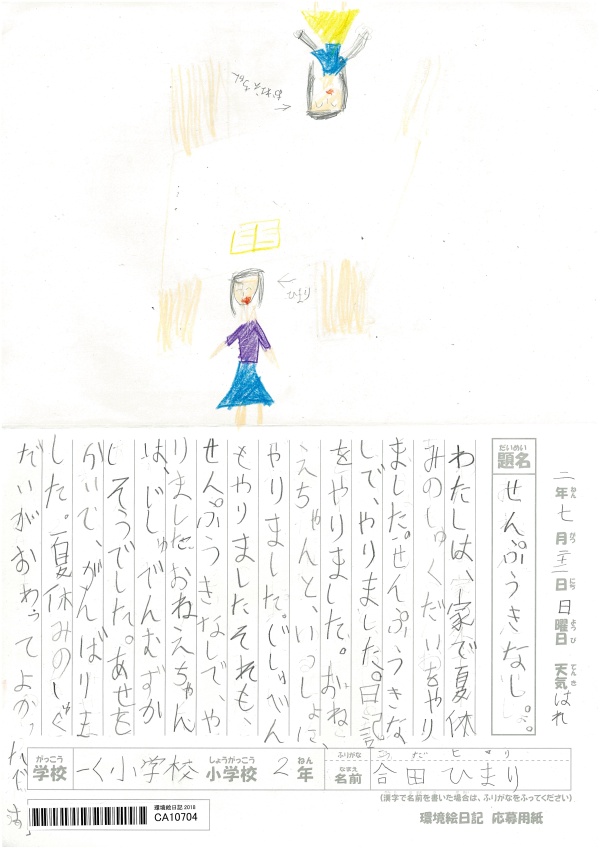 おねえちゃん
ひまり
二年七月二十二日 日曜日 天気 はれ
ねん がつ にち ようび てんき
だいめい
題名 せんぷうきなし。
わたしは、家で夏休
みのしゅくだいをやり
ました。せんぷうきな
しで、やりました。日記
をやりました。おね
えちゃんと、いっしょに、
やりました。じしゅでん
もやりました。それも、
せんぷうきなしで、や
りました。おねえちゃん
は、じしゅでんむずか
しそうでした。あせを
かいて、がんばりま
した。夏休みのしゅく
だいがおわってよかったです。
がっこう しょうがっこう ねん ふりがな ひまり
学校 一く小学校 小学校 2年 なまえ 名前 合田ひまり
(漢字で名前を書いた場合は、ふりがなをふってください)
環境絵日記 応募用紙
環境絵日記 2018
CA10704